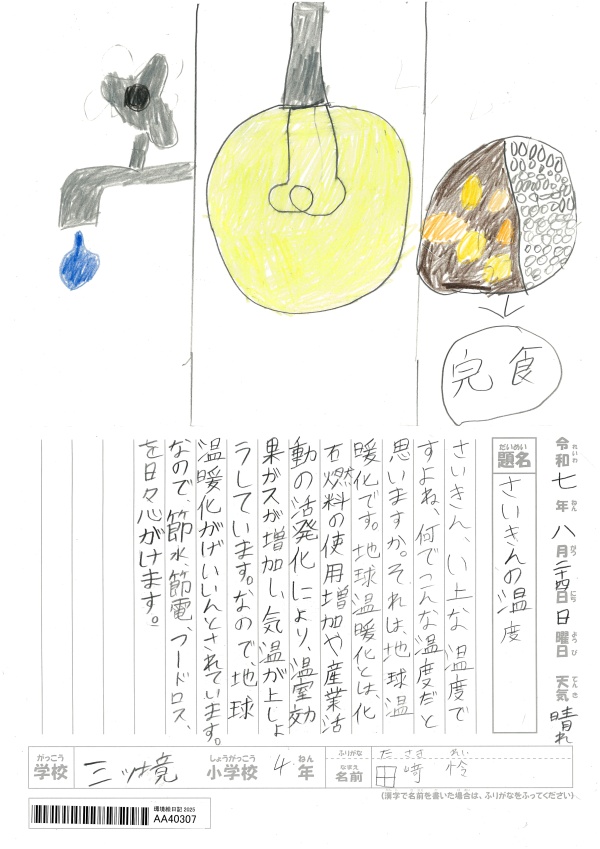 完食
令和七年八月二十四日日曜日 天気 晴れ
れいわ ねん がつ にち ようび てんき
だいめい
題名 さいきんの温度
さいきん、い上な温度で
すよね、何でこんな温度だと
思いますか。それは、地球温
暖化です。地球温暖化とは、化
石燃料の使用増加や産業活
動の活発化により、温室効
果ガスが増加し、気温が上しょ
うしています。なので、地球
温暖化がげいいんとされています。
なので、節水、節電、フードロス、
を日々心がけます。
がっこう しょうがっこう ねん ふりがな たさき れい
学校 三ツ境 小学校 4年 なまえ 名前 田崎 怜
(漢字で名前を書いた場合は、ふりがなをふってください)
環境絵日記 2025
AA40307